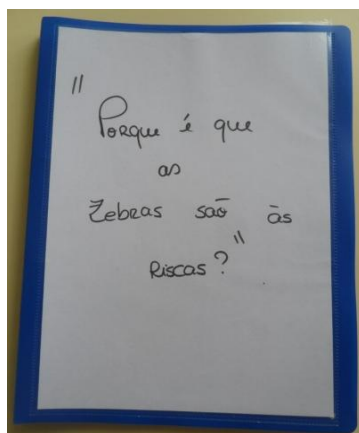 "Porque é que
as
Zebras são às
Riscas?"